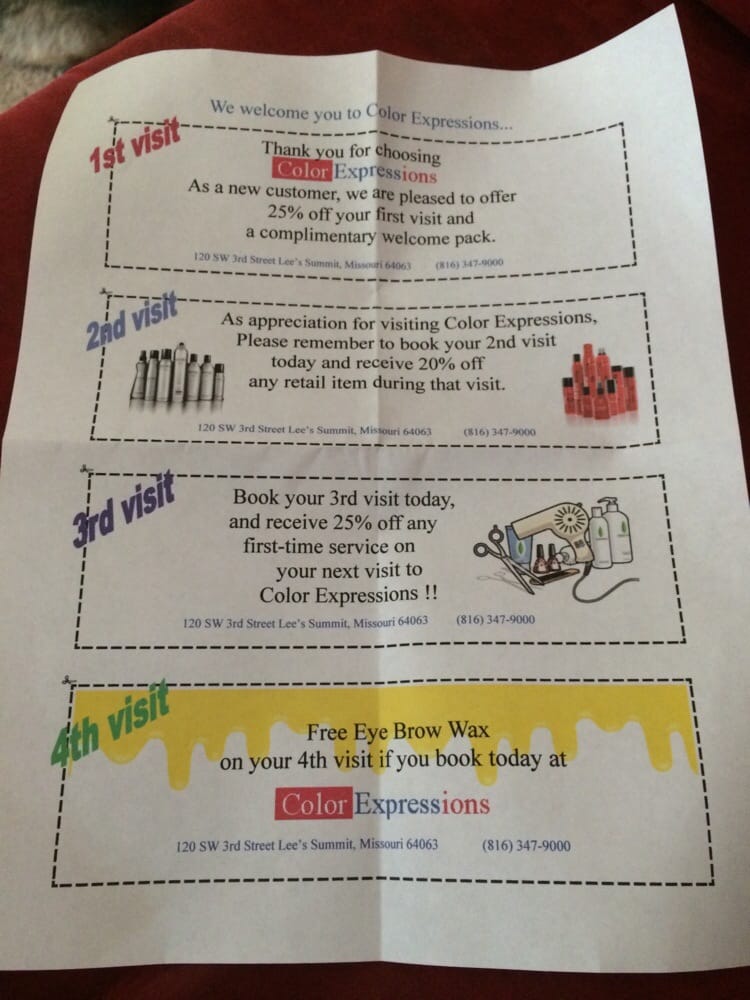 We welcome you to Color Expressions...
1st visit
Thank you for choosing
Color Expressions
As a new customer, we are pleased to offer
25% off your first visit and
a complimentary welcome pack.
120 SW 3rd Street Lee's Summit, Missouri 64063 (816) 347-9000
2nd visit
As appreciation for visiting Color Expressions,
Please remember to book your 2nd visit
today and receive 20% off
any retail item during that visit.
120 SW 3rd Street Lee's Summit, Missouri 64063 (816) 347-9000
3rd visit
Book your 3rd visit today,
and receive 25% off any
first-time service on
your next visit to
Color Expressions !!
120 SW 3rd Street Lee's Summit, Missouri 64063 (816) 347-9000
4th visit
Free Eye Brow Wax
on your 4th visit if you book today at
Color Expressions
120 SW 3rd Street Lee's Summit, Missouri 64063 (816) 347-9000